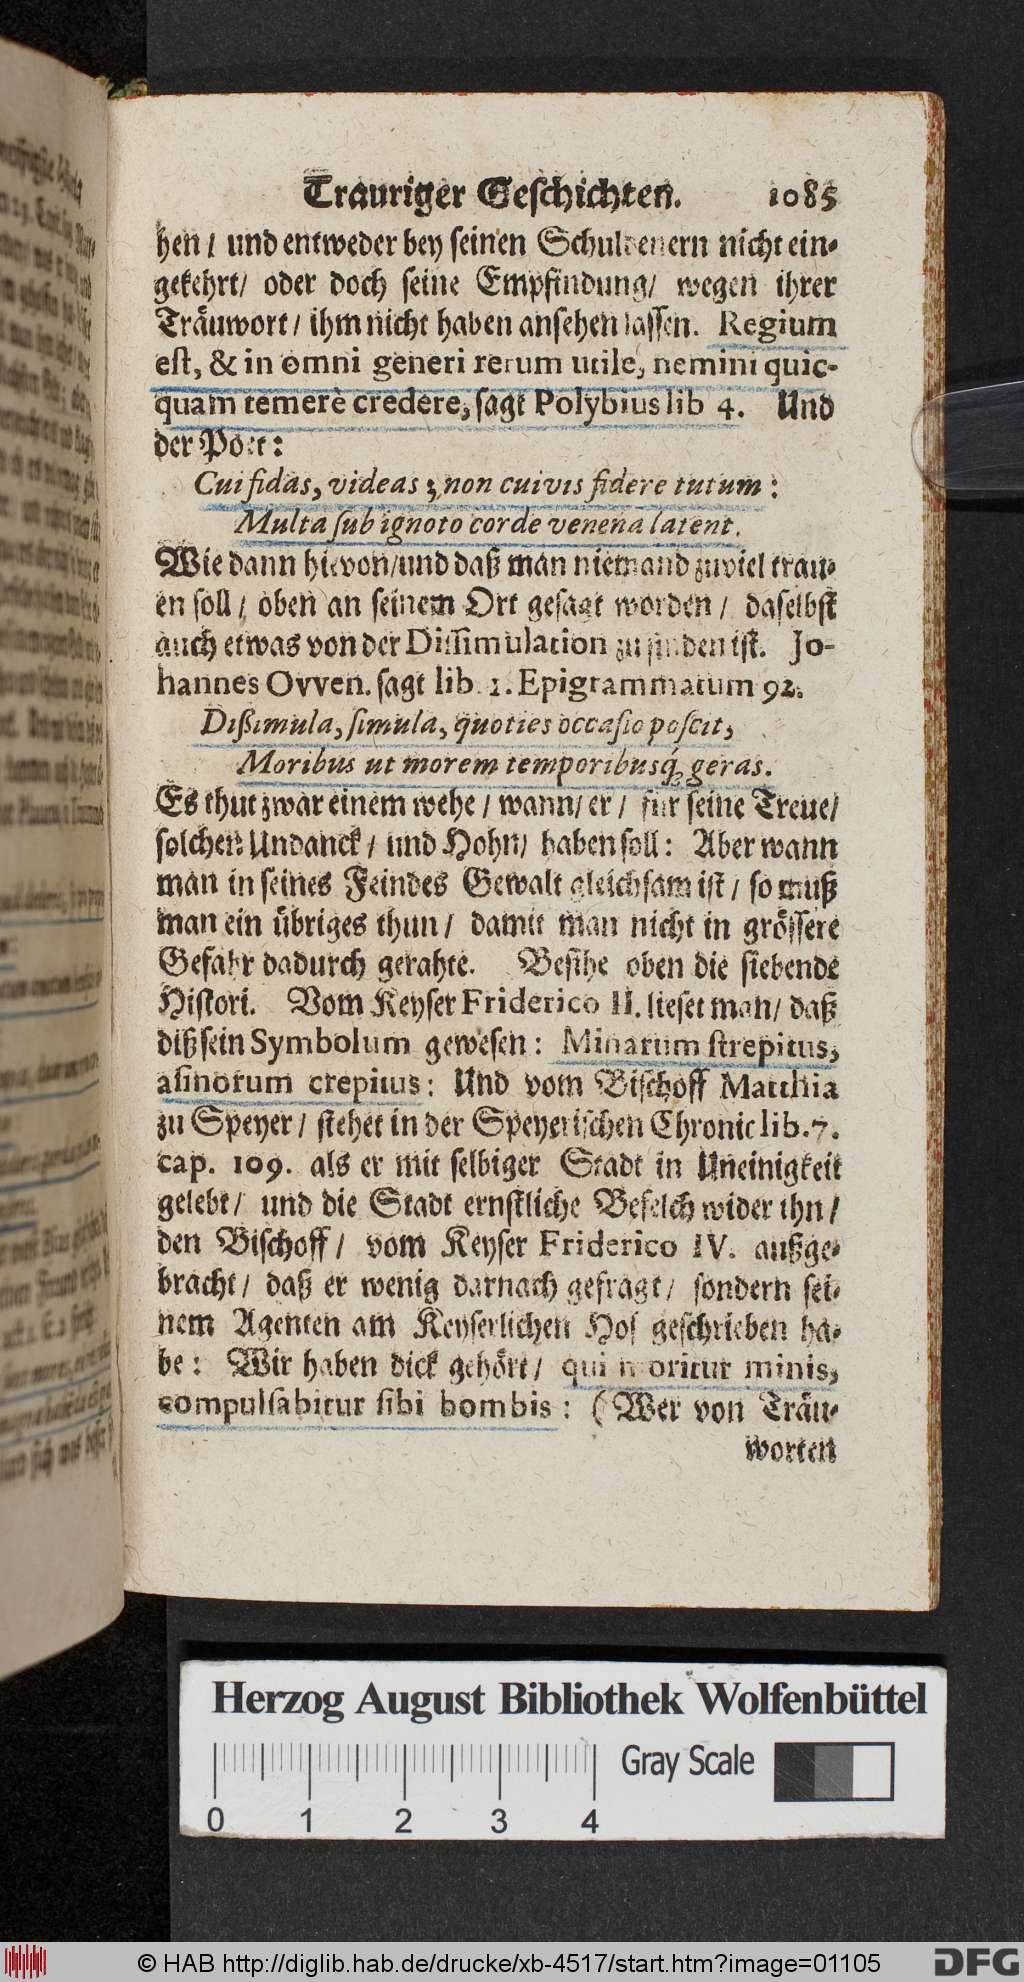 Trauriger Geſchichten. 1085
hen / und entweder bey ſeinen Schuldenern nicht ein-
gekehrt / oder doch ſeine Empfindung / wegen ihrer
Träuwort / ihm nicht haben anſehen laſſen. Regium
eſt, & in omni generi rerum utile, nemini quic-
quam temerè credere, ſagt Polybius lib 4. Und
der Poet:
Cui fidas, videas; non cuivis fidere tutum:
Multa ſub ignoto corde venena latent.
Wie dann hievon / und daß man niemand zuviel trau-
en ſoll / oben an ſeinem Ort geſagt worden / daſelbſt
auch etwas von der Diſſimulation zu finden iſt. Jo-
hannes Ovven. ſagt lib. 1. Epigrammatum 92.
Dißimula, ſimula, quoties occaſio poſcit,
Moribus ut morem temporibusq́; geras.
Es thut zwar einem wehe / wann / er / für ſeine Treue /
ſolchen Undanck / und Hohn / haben ſoll: Aber wann
man in ſeines Feindes Gewalt gleichſam iſt / ſo muß
man ein übriges thun / damit man nicht in gröſſere
Gefahr dadurch gerahte. Beſihe oben die ſiebende
Hiſtori. Vom Keyſer Friderico II. lieſet man / daß
diß ſein Symbolum geweſen: Minarum ſtrepitus,
aſinorum crepitus: Und vom Biſchoff Matthia
zu Speyer / ſtehet in der Speyeriſchen Chronic lib. 7.
cap. 109. als er mit ſelbiger Stadt in Uneinigkeit
gelebt / und die Stadt ernſtliche Befelch wider ihn /
den Biſchoff / vom Keyſer Friderico IV. außge-
bracht / daß er wenig darnach gefragt / ſondern ſei-
nem Agenten am Keyſerlichen Hof geſchrieben ha-
be: Wir haben dick gehört / qui moritur minis,
compulſabitur ſibi bombis: (Wer von Träu-
worten
Herzog August Bibliothek Wolfenbüttel
Gray Scale
0 1 2 3 4
© HAB http://diglib.hab.de/drucke/xb-4517/start.htm?image=01105
DFG